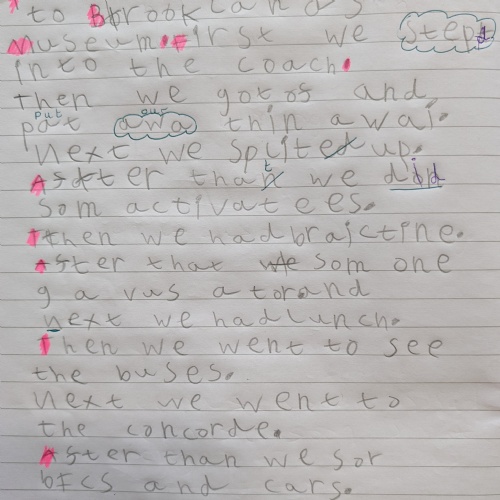 to Brooklands
Museum. First we step
into the coach.
then we got of and
put our
pat awa thin awai.
Next we splite up.
After that we did
som activatees.
then we had braictine.
After that we som one
gavus a tor and
next we had lunch.
Then we went to see
the buses.
Next we went to
the concorde.
After than we sor
and cars.